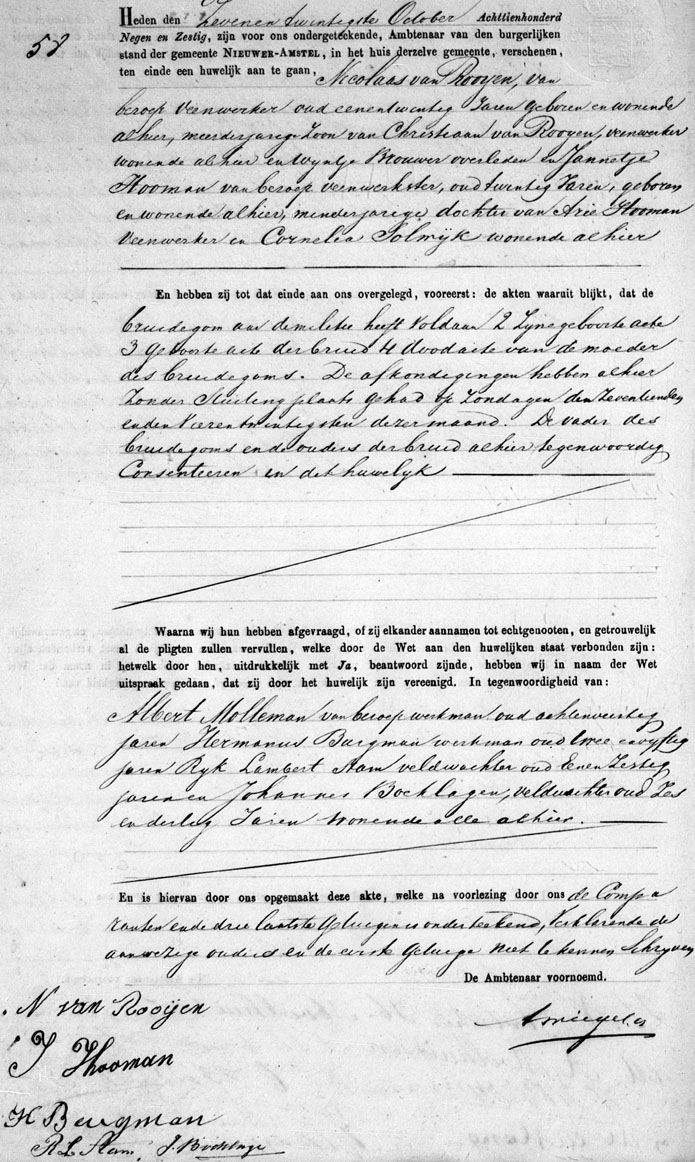 58
Heden den Zevenen twintigste October Achttienhonderd
Negen en Zestig, zijn voor ons ondergeteekende, Ambtenaar van den burgerlijken
stand der gemeente NIEUWER-AMSTEL, in het huis derzelve gemeente, verschenen,
ten einde een huwelijk aan te gaan, Nicolaas van Rooyen, van
beroep Veenwerker oud eenentwintig Jaren geboren en wonende
alhier, meerderjarige Zoon van Christiaan van Rooyen, veenwerker
wonende alhier en Wyntje Brouwer overleden en Jannetje
Hooman van beroep veenwerkster, oud twintig Jaren, geboren
en wonende alhier, minderjarige dochter van Arie Hooman
Veenwerker en Cornelia Solwijk wonende alhier
En hebben zij tot dat einde aan ons overgelegd, vooreerst: de akten waaruit blijkt, dat de
bruidegom aan de militie heeft Voldaan 2 Zyne geboorte acte
3 geboorte acte der bruid 4 doodacte van de moeder
des bruidegoms. De afkondigingen hebben alhier
Zonder Stuiting plaats gehad op Zondagen den Zeventienden
en den Vierentwintigsten dezer maand. De vader des
bruidegoms en de ouders der bruid alhier tegenwoordig
Consenteeren in dit huwelyk
Waarna wij hun hebben afgevraagd, of zij elkander aannamen tot echtgenooten, en getrouwelijk
al de pligten zullen vervullen, welke door de Wet aan den huwelijken staat verbonden zijn:
hetwelk door hen, uitdrukkelijk met Ja, beantwoord zijnde, hebben wij in naam der Wet
uitspraak gedaan, dat zij door het huwelijk zijn vereenigd. In tegenwoordigheid van:
Albert Molleman van beroep werkman oud achtenveertig
jaren Hermanus Burgman werkman oud twee envyftig
jaren Ryk Lambert Stam veldwachter oud Eenen Zestig
jaren en Johannes Bocklagen, veldwachter oud Zes
en dertig Jaren wonende alle alhier.
En is hiervan door ons opgemaakt deze akte, welke na voorlezing door ons de Compa
ranten en de drie laatste Getuigen is onderteekend, Verklarende de
aanwezige ouders en de eerste getuige niet te kennen Schryven
De Ambtenaar voornoemd.
N van Rooijen
J Hooman
H Beugman
R L Stam J. Bocklage